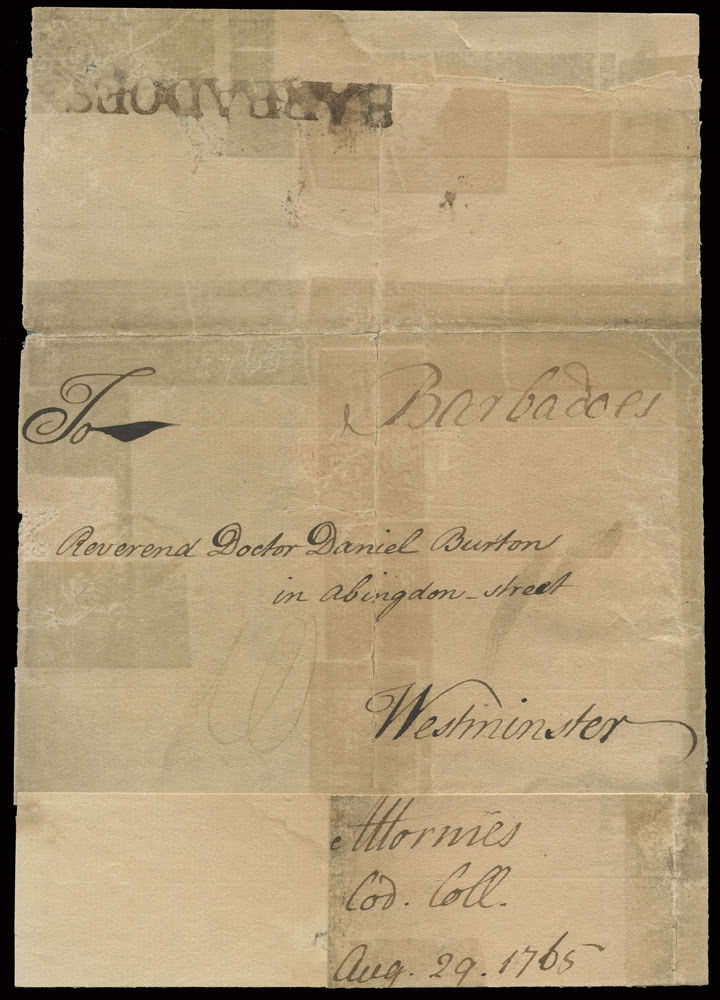 BARBADOES
To
Barbadoes
Reverend Doctor Daniel Burton
in Abingdon-street
Westminster
Attornies
Cod. Coll.
Aug. 29. 1765